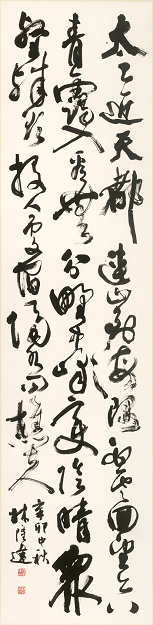 太乙近天都連山到海隅白雲回望合
青靄入看無分野中峰變陰晴眾
壑殊欲投人處宿隔水問樵夫
辛卯中秋
林隆達